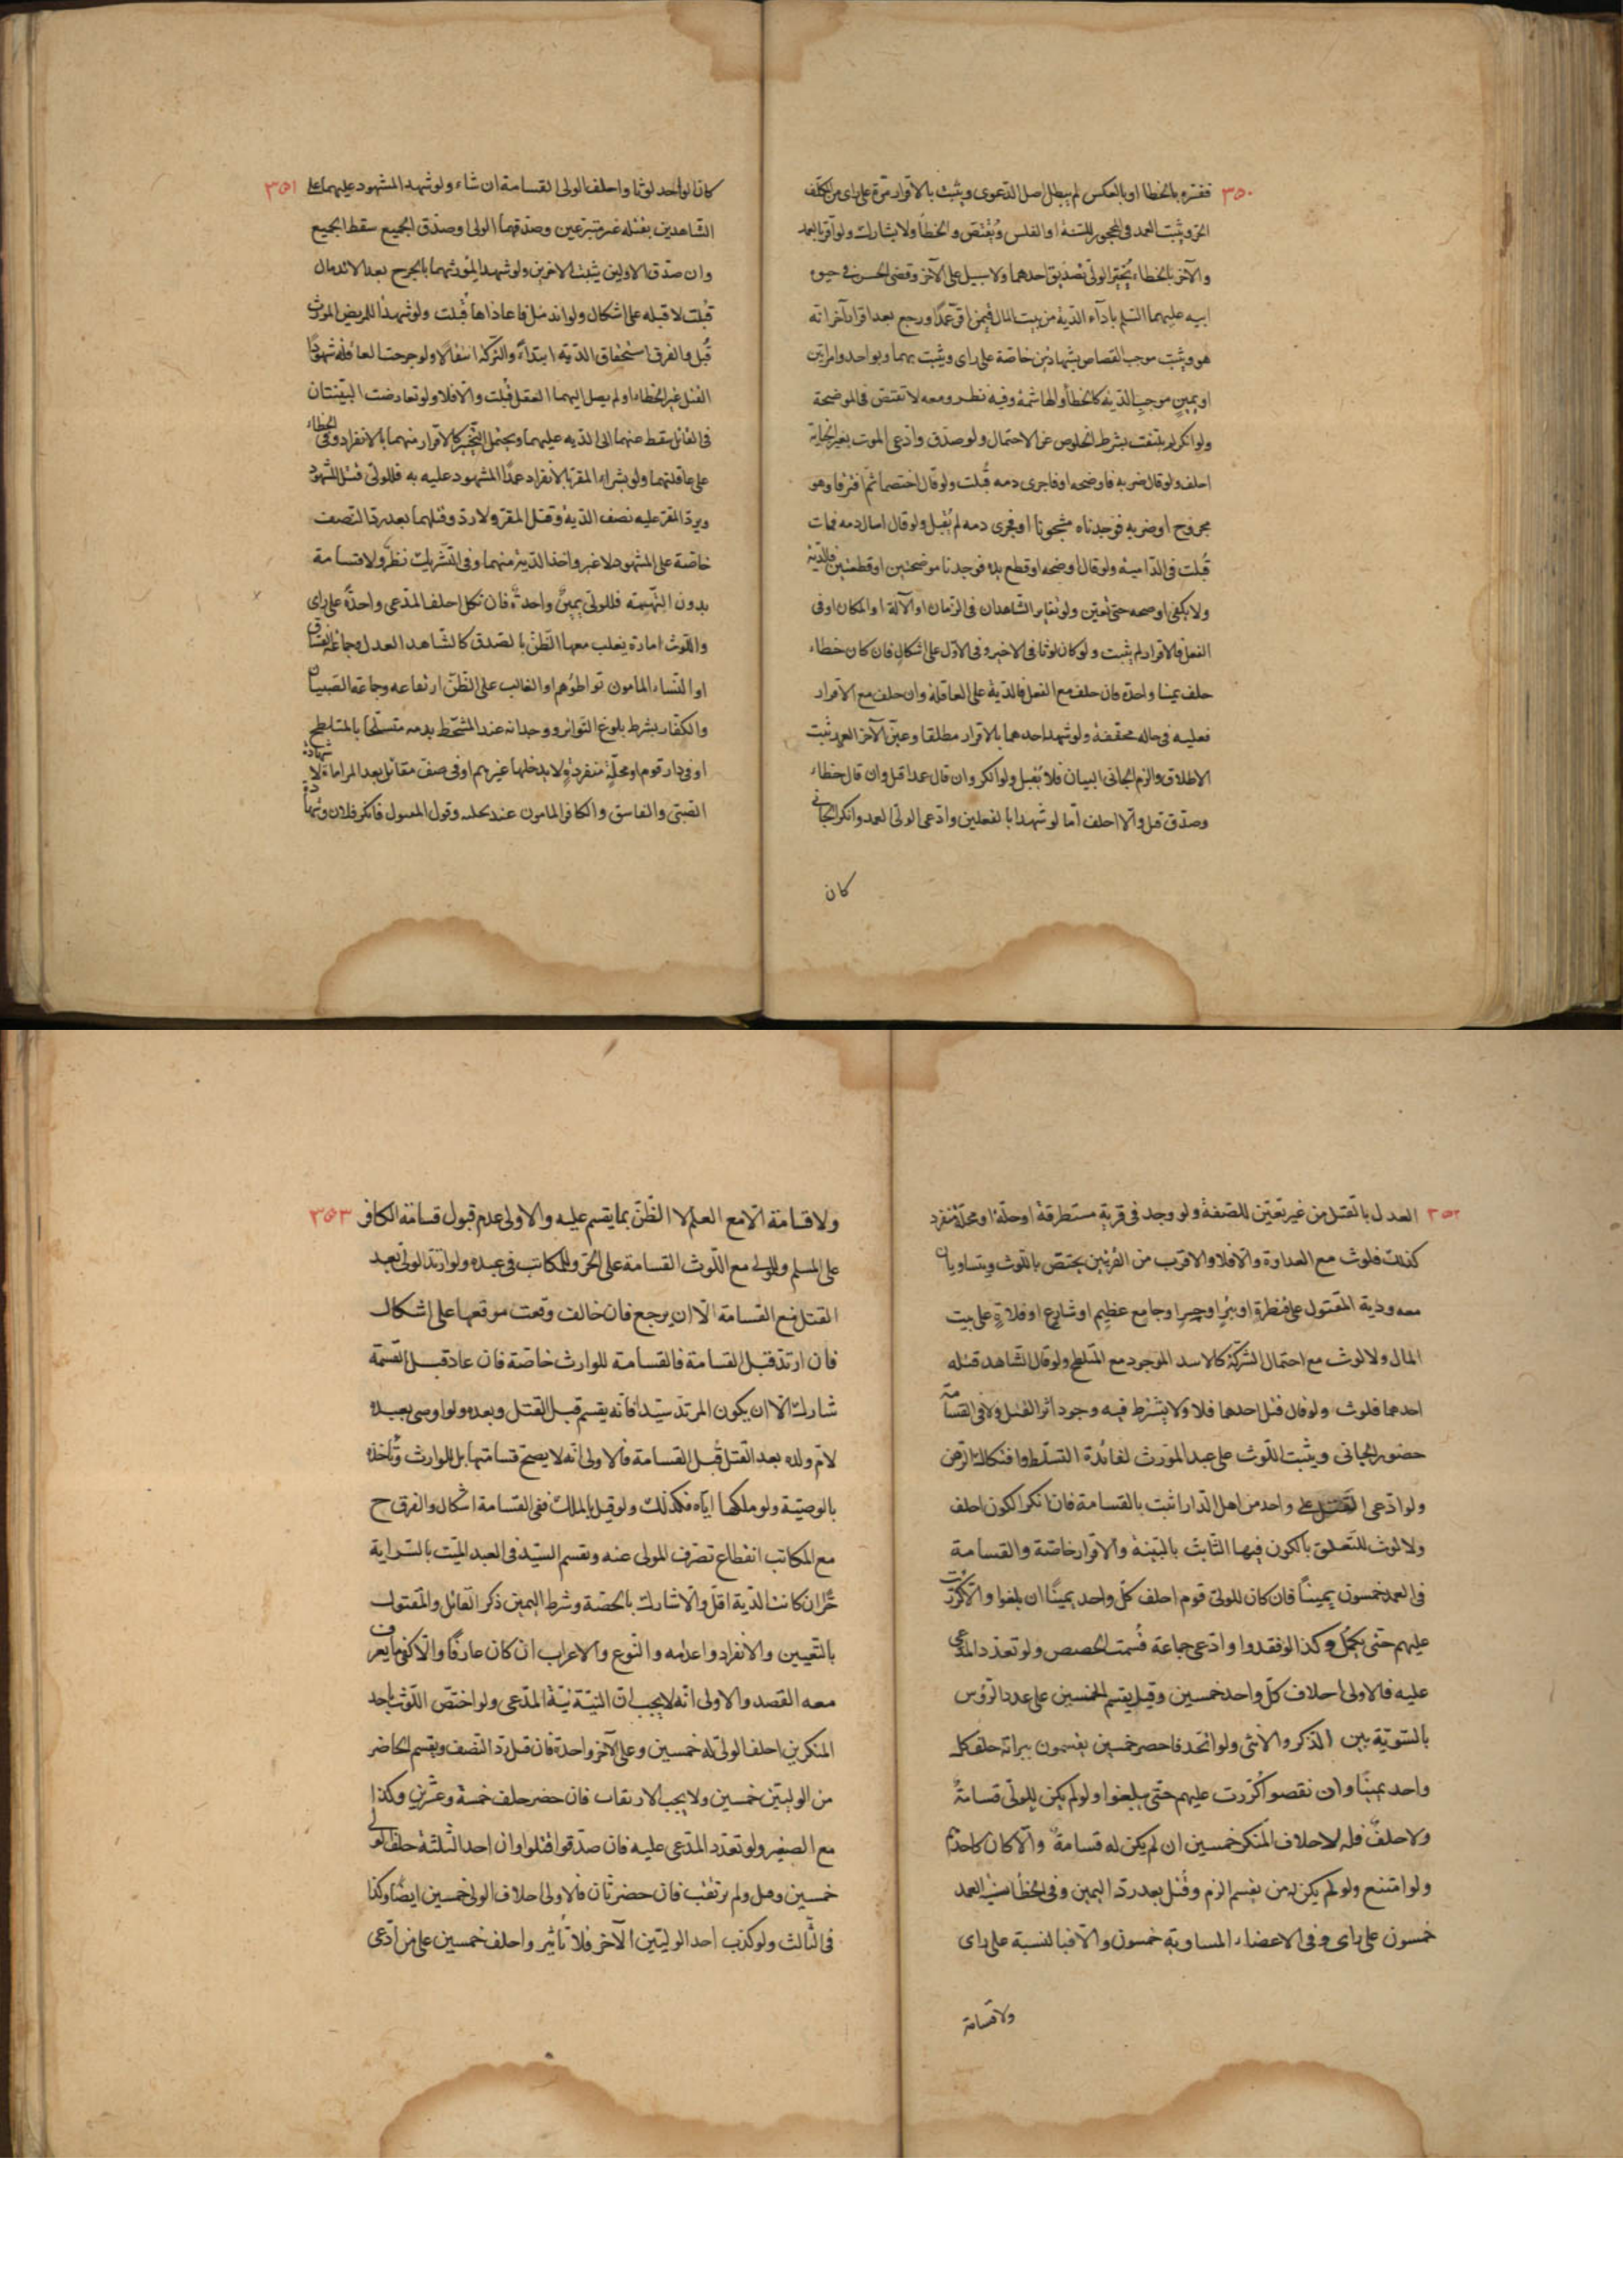 ٣٥٠
ففسره بالخطا او بالعكس لم يبطل اصل الدعوى ويثبت بالاقرار مرة على راى من المكلف
الحر ويثبت العمد فى المحجور للسفه او الفلس ويقتص والخطأ ولا يشارك ولو اقر بالعمد
والآخر بالخطاء يخير الولى بتصديق احدهما ولا سبيل على الآخر وقضى الحسن فى حيوة
ابيه عليهما السلم باداء الدية من بيت المال فيمن اقر عمدا ورجع بعد اقرار آخر انه
هو ويثبت موجب القصاص بشهادتين خاصة على راى ويثبت بهما وبواحد وامراتين
او يمين موجب الدية كالخطأ والهاشمة وفيه نظر ومعه لا تقتص فى الموضحة
ولو انكر لم يلتفت بشرط الخلوص عن الاحتمال ولو صدق وادعى الموت بغير الجناية
احلف ولو قال ضربه فاوضحه او فاجرى دمه قبلت ولو قال اختصما ثم افترقا وهو
مجروح او ضربه فوجدناه مشجوجا او فجرى دمه لم يقبل ولو قال اسال دمه فمات
قبلت فى الدامية ولو قال اوضحه او قطع يده فوجدنا موضحتين او قطعتين فالدية
ولا يكفى اوضحه حتى تعين ولو تغاير الشاهدان فى الزمان او الآلة او المكان او فى
الفعل فالاقرار لم يثبت ولو كان لوثا فى الاخير وفى الاول على اشكال فان كان خطاء
حلف يمينا واحدة فان حلف مع الفعل فالدية على العاقلة وان حلف مع الاقرار
فعليه فى حاله مخففة ولو شهد احدهما بالاقرار مطلقا وعين الآخر العمد ثبت
الاطلاق والزم الجانى البيان فلا يقبل ولو انكر وان قال عمدا قتل وان قال خطاء
وصدق قبل والا احلف اما لو شهدا بالفعلين وادعى الولى العمد وانكر الجانى
كان
٣٥١
كان الواحد لوثا واحلف الولى القسامة ان شاء ولو شهد المشهود عليهما على
الشاهدين بقتله غير متبرعين وصدقهما الولى وصدق الجميع سقط الجميع
وان صدق الاولين يثبت الاخرين ولو شهد المورثهما بالجرح بعد الاندمال
قبلت لا قبله على اشكال ولو اندمل فاعاداها قبلت ولو شهدا للمريض الموروث
قبل والفرق استحقاق الدية ابتداء والتركة انتقالا ولو جرحت العاقلة شهود
القتل غير الخطاء او لم يصل اليهما العقل قبلت والا فلا ولو تعارضت البينتان
فى القاتل سقط عنهما الى الدية عليهما ويحتمل التخير كالاقرار منهما بالانفراد وفى الخطاء
على عاقلتهما ولو بشر المقر بالانفراد عمدا المشهود عليه به فللولى قتل المشهود
ويرد المقر عليه نصف الدية وقتل المقر ولا رد وقتلهما بعد رد النصف
خاصة على المشهود لا غير واخذ الدية منهما وفى التشريك نظر ولا قسامة
بدون التهمة فللولى يمين واحدة فان نكل احلف المدعى واحدة على راى
واللوث امارة يغلب معها الظن بالصدق كالشاهد العدل وجماعة الفساق
او النساء المامون تواطؤهم او الغالب على الظن ارتفاعه وجماعة الصبيان
والكفار بشرط بلوغ التواتر ووجدانه عند المتشحط بدمه متسلحا بالمتلطخ
او فى دار قوم او محلة منفردة ولا يدخلها غيرهم او فى صف مقاتل بعد المراماة لا شهادة
الصبى والفاسق والكافر المامون عند نحلته وقول المقتول فانكر فلان وشهادة
٣٥٢
العدل بالقتل من غير تعين للصفة ولو وجد فى قرية مستطرقة او حلة او محلة منفردة
كذلك فلوث مع العداوة والا فلا والاقرب من القريتين يختص باللوث ويتساويان
معه ودية المقتول على قنطرة او بئر او جسر او جامع عظيم او شارع او فلاة على بيت
المال ولا لوث مع احتمال الشركة كالاسد الموجود مع المتلطخ ولو قال الشاهد قتله
احدهما فلوث ولو قال قتل احدهما فلا ولا يشترط فيه وجود اثر القتل ولا فى القسامة
حضور الجانى ويثبت اللوث على عبد المورث لفائدة التسلط وافتكاك الرهن
ولو ادعى القتل على واحد من اهل الدار اثبت بالقسامة فان انكر الكون احلف
ولا لوث للتعلق بالكون فيها الثابت بالبينة والاقرار خاصة والقسامة
فى العمد خمسون يمينا فان كان للولى قوم احلف كل واحد يمينا ان بلغوا والا كررت
عليهم حتى يكمل وكذا لو فقدوا وادعى جماعة قسمت الحصص ولو تعدد المدعى
عليه فالاولى احلاف كل واحد خمسين وقيل يقسم الخمسين على عدد الرؤس
بالسوية بين الذكر والانثى ولو اتحد فاحضر خمسين يقسمون ببراته حلف كل
واحد يمينا وان نقصوا كررت عليهم حتى يبلغوا ولو لم يكن للولى قسامة
ولا حلف فله لاحلاف المنكر خمسين ان لم يكن له قسامة والا كان كاحدهم
ولو امتنع ولو لم يكن له من يقسم الزم وقيل بعد رد اليمين وفى الخطأ شبيه العمد
خمسون على راى وفى الاعضاء المساوية خمسون والا فبالنسبة على راى
ولا قسامة
٣٥٣
ولا قسامة الا مع العلم لا الظن بما يقسم عليه والاولى عدم قبول قسامة الكافر
على المسلم وللولى مع اللوث القسامة على الحر وللمكاتب فى عبده ولو ارتد الولى بعد
القتل منع القسامة الا ان يرجع فان خالف وقعت موقعها على اشكال
فان ارتد قبل القسامة فالقسامة للوارث خاصة فان عاد قبل القسمة
شارك الا ان يكون المرتد سيدا فانه يقسم قبل القتل وبعده ولو اوصى بعبده
لام ولده بعد القتل قبل القسامة فالاولى انه لا يصح قسامتها بل للوارث وتاخذه
بالوصية ولو ملكها اياه فكذلك ولو قيل بالملك ففى القسامة اشكال والفرق ح
مع المكاتب انقطاع تصرف المولى عنه ويقسم السيد فى العبد الميت بالسراية
حرا ان كانت الدية اقل والا شارك بالحصة وشرط اليمين ذكر القاتل والمقتول
بالتعيين والانفراد واعدامه والنوع والاعراب ان كان عارفا والا كفى ما يعرف
معه القصد والاولى انه لا يجب ان النية نية المدعى ولو اختص اللوث باحد
المنكرين احلف الولى له خمسين وعلى الآخر واحدة فان قتل رد النصف ويقسم الحاضر
من الوليين خمسين ولا يجب الارتقاب فان حضر حلف خمسة وعشرين وكذا
مع الصغير ولو تعدد المدعى عليه فان صدقوا قتلوا وان احد الثلثة حلف الولى
خمسين وقتل ولم يرتقب فان حضر ثان فالاولى احلاف الولى خمسين ايضا وكذا
فى الثالث ولو كذب احد الوليين الآخر فلا تأثير واحلف خمسين على من ادعى